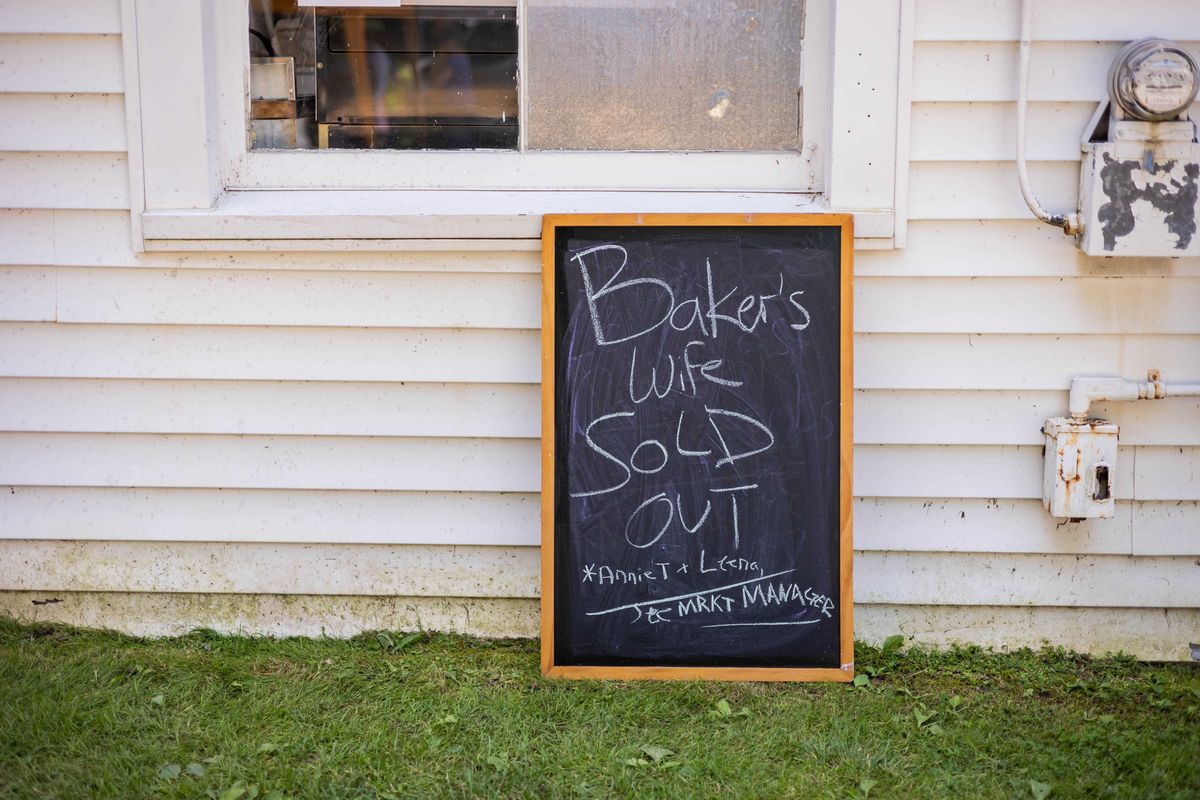 Baker's
Wife
SOLD
OUT
*Annie T + Leena
See MRKT MANAGER